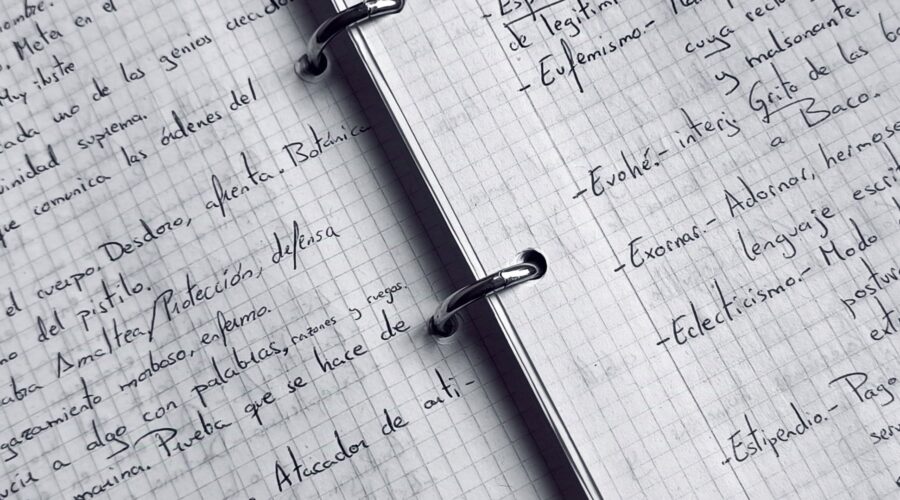 ombre.
. Meta en el
Muy ilustre
cada uno de los genios creados
inidad suprema.
que comunica las órdenes del
el cuerpo. Desdoro, afrenta. Botánica
no del pistilo.
abra Amaltea/Protección, defensa
gazamiento morboso, enfermo.
ucir a algo con palabras, razones y ruegos.
marina. Prueba que se hace de
Atacador de arti-
- Esp
de legitimi
- Eufemismo.-
cuya recie
y malsonante.
- Evohé.- interj. Grito de las ba
a Baco.
- Exornar.- Adornar, hermose
lenguaje escri
- Eclecticismo.- Modo
postura
ext
- Estipendio.- Pago
serv